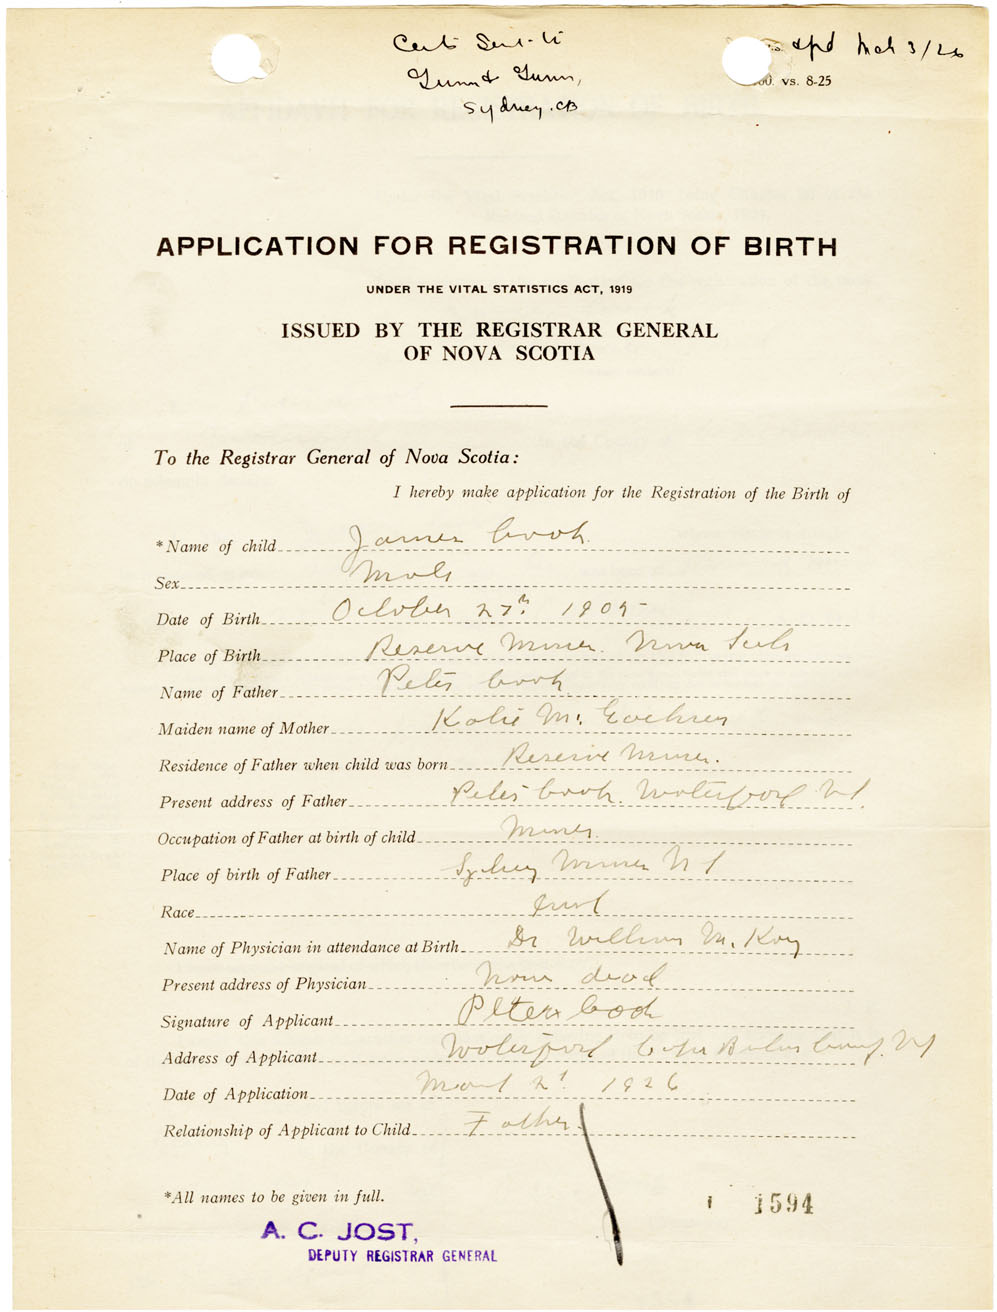 Gunn & Gunn,
Sydney. CB
Mch 3/26
vs. 8-25
APPLICATION FOR REGISTRATION OF BIRTH
UNDER THE VITAL STATISTICS ACT, 1919
ISSUED BY THE REGISTRAR GENERAL
OF NOVA SCOTIA
To the Registrar General of Nova Scotia:
I hereby make application for the Registration of the Birth of
*Name of child James Cook
Sex Male
Date of Birth October 27th 1905
Place of Birth Reserve Mines. Nova Scotia
Name of Father Peter Cook
Maiden name of Mother Katie Mc
Residence of Father when child was born Reserve Mines.
Present address of Father Peter Cook. Waterford N S.
Occupation of Father at birth of child Miner.
Place of birth of Father Sydney Mines N S
Race
Name of Physician in attendance at Birth Dr William McKay
Present address of Physician Now dead
Signature of Applicant Peter Cook
Address of Applicant Waterford Cape Breton County. N S
Date of Application March 2d 1926
Relationship of Applicant to Child Father
*All names to be given in full.
1594
A. C. JOST,
DEPUTY REGISTRAR GENERAL